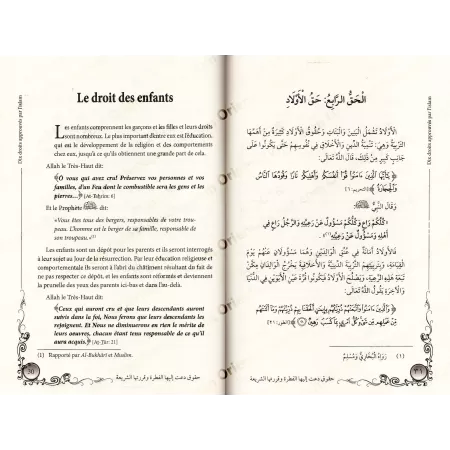 Le droit des enfants
Les enfants comprennent les garçons et les filles et leurs droits
sont nombreux. Le plus important d'entre eux est l'éducation,
qui est le developpement de la religion et des comportements
chez eux, jusqu'à ce qu'ils obtiennent une grande part de cela.
Allah le Très-Haut dit:
Ô vous qui avez cru! Préservez vos personnes et vos
familles, d'un Feu dont le combustible sera les gens et les
pierres... [At-Tahrim: 6]
Et le Prophète dit:
«Vous êtes tous des bergers, responsables de votre trou-
peau. L'homme est le berger de sa famille, responsable de
son troupeau.»(1)
Les enfants sont un dépôt pour les parents et ils seront interrogés
à leur sujet au Jour de la résurrection. Par leur éducation religieuse et
comportementale ils seront à l'abri du châtiment résultant de fait de
ne pas les éduquer. Ainsi les enfants seront vertueux et deviennent
la prunelle des yeux des parents ici-bas et dans l'au-delà.
Allah le Très-Haut dit:
Ceux qui auront cru et que leurs descendants auront
suivis dans la foi, Nous ferons que leurs descendants les
rejoignent. Et Nous ne diminuerons en rien le mérite de
leurs œuvres, chacun étant tenu responsable de ce qu'il
aura acquis. [At-Tûr: 21]
(1) Rapporté par Al-Bukhârî et Muslim.
30
حقوق دعت إليها الفطرة وقررتها الشريعة
Dix droits approuvés par l'islam
الْحَقُّ الرَّابِعُ: حَقُّ الْأَوْلَادِ
الْأَوْلَادُ تَشْمَلُ الْبَنِينَ وَالْبَنَاتِ وَحُقُوقُ الْأَوْلَادِ كَثِيرَةٌ مِنْ أَهَمِّهَا
التَّرْبِيَةُ وَهِيَ: تَنْمِيَةُ الدِّينِ وَالْأَخْلَاقِ فِي نُفُوسِهِمْ حَتَّى يَكُونُوا عَلَى
جَانِبٍ كَبِيرٍ مِنْ ذَلِكَ، قَالَ اللَّهُ تَعَالَى:
﴿يَا أَيُّهَا الَّذِينَ ءَامَنُوا قُوا أَنْفُسَكُمْ وَأَهْلِيكُمْ نَارًا وَقُودُهَا النَّاسُ
وَالْحِجَارَةُ﴾ [التحريم: ٦]
وَقَالَ النَّبِيُّ
«كُلُّكُمْ رَاعٍ وَكُلُّكُمْ مَسْؤُولٌ عَنْ رَعِيَّتِهِ وَالرَّجُلُ رَاعٍ فِي
أَهْلِهِ وَمَسْؤُولٌ عَنْ رَعِيَّتِهِ»(١)
فَالْأَوْلَادُ أَمَانَةٌ فِي عُنُقِ الْوَالِدَيْنِ وَهُمَا مَسْؤُولَانِ عَنْهُمْ يَوْمَ
الْقِيَامَةِ، وَبِتَرْبِيَتِهِمُ التَّرْبِيَةَ الدِّينِيَّةَ وَالْأَخْلَاقِيَّةَ يَخْرُجُ الْوَالِدَانِ مِنْ
تَبِعَةِ هَذِهِ الرَّعِيَّةِ، وَيَصْلُحُ الْأَوْلَادُ فَيَكُونُوا قُرَّةَ عَيْنِ الْأَبَوَيْنِ فِي الدُّنْيَا
وَالْآخِرَةِ يَقُولُ اللَّهُ تَعَالَى:
﴿وَالَّذِينَ ءَامَنُوا وَاتَّبَعَتْهُمْ ذُرِّيَّتُهُمْ بِإِيمَانٍ أَلْحَقْنَا بِهِمْ ذُرِّيَّتَهُمْ وَمَا أَلَتْنَاهُمْ
مِنْ عَمَلِهِمْ مِنْ شَيْءٍ كُلُّ امْرِئٍ بِمَا كَسَبَ رَهِينٌ﴾ [الطور: ٢١]
(١) رَوَاهُ الْبُخَارِيُّ وَمُسْلِمٌ
٣١
حقوق دعت إليها الفطرة وقررتها الشريعة
Dix droits approuvés par l'islam